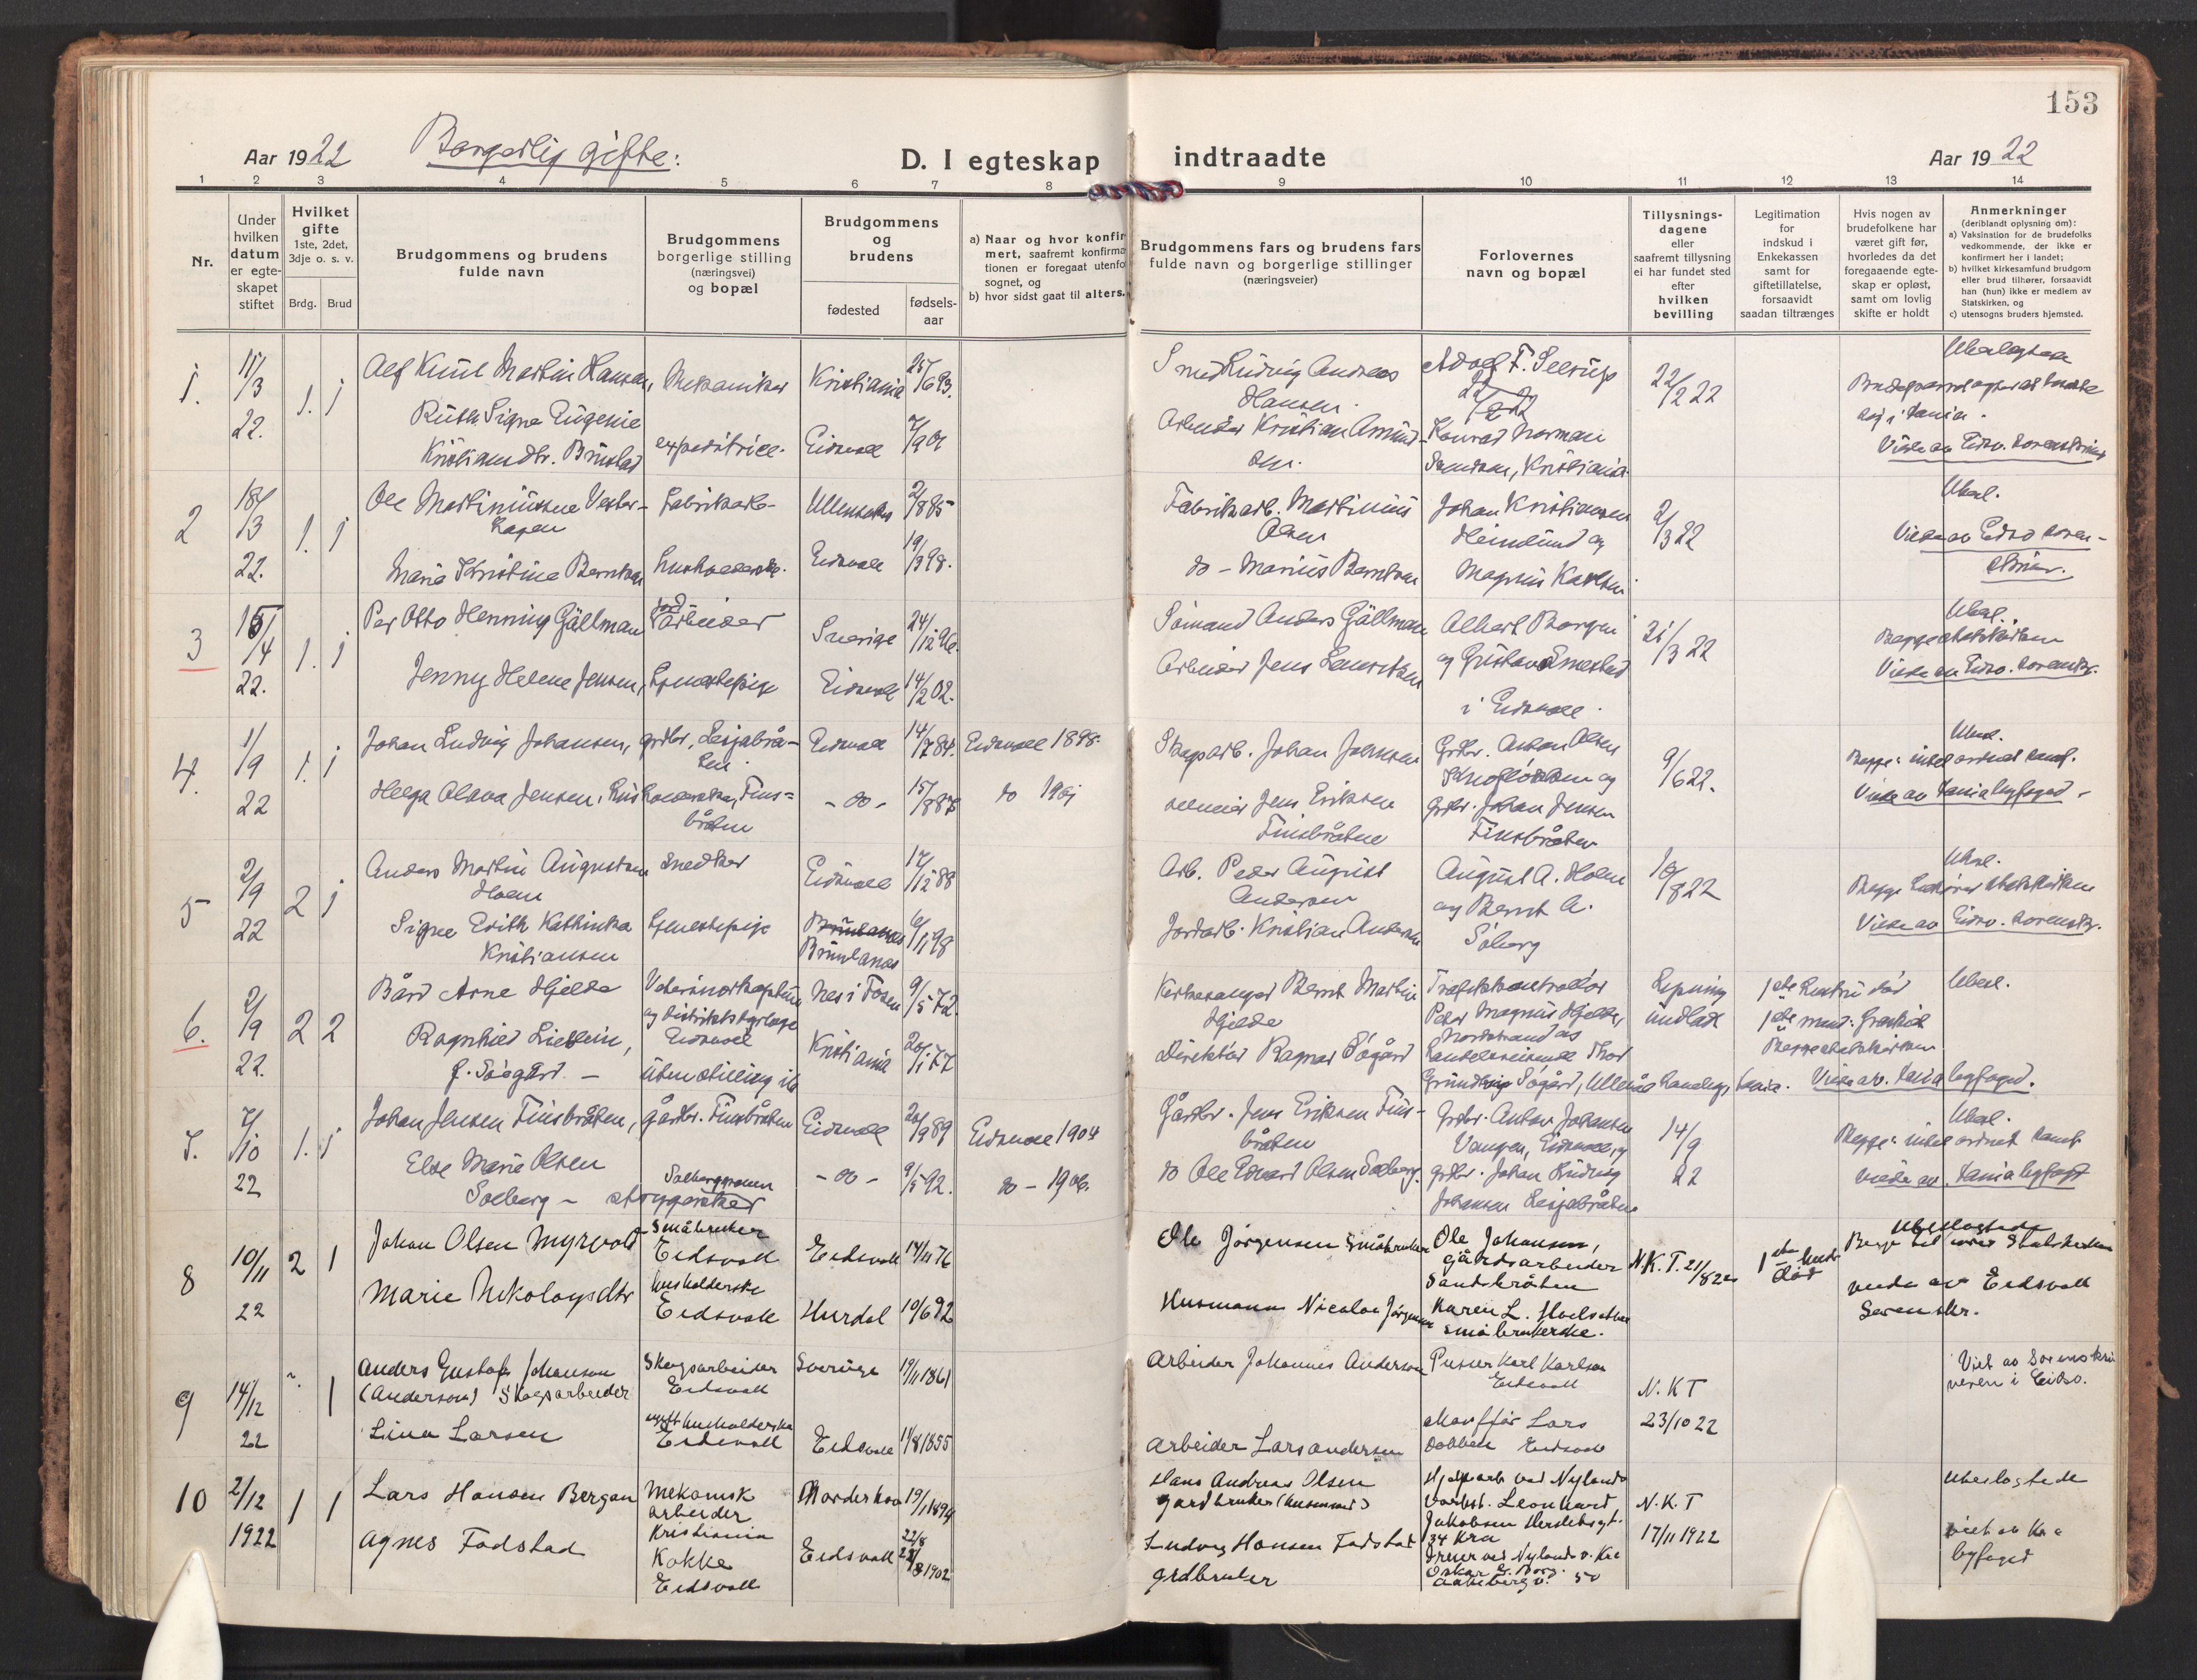 153
Aar 1922 Borgerlig gifte: D. I egteskap indtraadte Aar 1922
1 2 3 4 5 6 7 8 9 10 11 12 13 14
Nr.
Under hvilken datum er egte-skapet stiftet
Hvilket gifte
1ste, 2det, 3dje o. s. v.
Brdg. Brud
Brudgommens og brudens fulde navn
Brudgommens borgerlige stilling (næringsvei) og bopæl
Brudgommens og brudens
fødested fødsels-aar
a) Naar og hvor konfir
mert, saafremt konfirma
tionen er foregaat utenfo
sognet, og
b) hvor sidst gaat til alters.
Brudgommens fars og brudens fars
fulde navn og borgerlige stillinger
(næringsveier)
Forlovernes
navn og bopæl
Tillysnings-
dagene
eller
saafremt tillysning
ei har fundet sted
efter
hvilken
bevilling
Legitimation
for
indskud i
Enkekassen
samt for
giftetillatelse,
forsaavidt
saadan tiltrænges
Hvis nogen av
brudefolkene har
været gift før,
hvorledes da det
foregaaende egte-
skap er opløst,
samt om lovlig
skifte er holdt
Anmerkninger
(deriblandt oplysning om):
a) Vaksination for de brudefolks
vedkommende, der ikke er
konfirmert her i landet;
b) hvilket kirkesamfund brudgom
eller brud tilhører, forsaavidt
han (hun) ikke er medlem av
Statskirken, og
c) utensogns bruders hjemsted.
1. 11/3 22. 1. 1
Alf Knut Martin Hansen, Mekaniker Kristiania 25/6 93.
Smed Ludvig Andreas Hansen.
Adolf F. Seerup
22/2 22
Ruth Signe Eugenie
Kristiansdtr. Brustad expeditrice. Eidsvoll 7/9 01
Arbeider Kristian Amund-
sen.
Konrad Norman
Kristiania.
2 18/3 22. 1. 1
Ole Martiniussen Vester-
hagen Fabrikarb- Ullensaker 2/8 85
Fabrikarb. Martinius
Olsen
Johan Kristiansen
Heimlund og
2/3 22
Ubesl.
Maria Kristine Berntsen husholderske. Eidsvoll 19/3 98.
do - Marius Berntsen
Magnus Karlsen.
3 15/4 22. 1. 1
Per Otto Henning Gällman arbeider Sverige 24/12 96.
Sömand Anders Gällman
Albert Borgen
21/3 22
Ubesl.
Begge statskirken
Viede av Eidsv. sorenskr.
Jenny Helene Jensen, tjenestepige Eidsvoll 14/2 02.
Arbeider Jens Lauritsen
og Gustav Ernestad
i Eidsvoll.
4. 1/9 22 1. 1
Johan Ludvig Johansen, grdbr, Lesjabrå-
ten. Eidsvoll 14/7 84. Eidsvoll 1898.
Skogsarb. Johan Johansen
Grdbr. Anton Olsen
og
9/6 22.
Ubesl.
Viede av Kania byfoged.
Helga Olava Jensen, husholderske, Fins=
bråten - do - 15/8 87 do 1901
Jens Eriksen
Finsbråten
Grdbr. Johan Jensen
Finsbråten
5 2/9 22 2 1
Anders Martin Augustsen
Holm snedker Eidsvoll 17/12 88
Arb. Peder August
Andersen
August A. Holm
og Bernt A.
Söberg
10/8 22
Ubesl.
Begge tilhører statskirken
Viede av Eidsv. sorenskr.
Signe Edith Kathinka
Kristiansen tjenestepige Brunlanes 6/1 98
Jordarb. Kristian Andersen
6. 2/9 22. 2 2
Bård Arne Hjelde Veterinærkaptein
og distriktsdyrlæge
Eidsvoll Nes i Fosen 9/5 72.
Kirkesanger Bernt Martin
Hjelde
Trafikkontrollør
Peder Magnus Hjelde,
Nordstrand og
Lysning
undlatt
1ste hustru død
1ste mand: fraskilt
Begge statskirken
Ubesl.
Ragnhild Lieblein,
f. Søegård. - uten stilling ib Kristiania 20/1 77
Direktør Ragnar Søgård
handelsreisende Thor
Søgård, Ullevål Kania. Viede av. Kania byfoged.
7. 7/10 22 1. 1
Johan Jensen Finsbråten, gårdbr. Finsbråten Eidsvoll 20/9 89 Eidsvoll 1904
Gårdbr. Jens Eriksen Fins-
bråten
Grdbr. Anton Johansen
Vangen, Eidsvoll, og
14/9 22
Ubesl.
Else Marie Olsen
Solberg - Eidsvoll - do - 9/5 92. do - 1906.
do Ole Edvard Olsen Solberg.
grdbr. Johan Ludvig
Johansen Lesjabråten
viede av Kania byfogd
8 10/11 22 2 1
Johan Olsen Myrvold Småbruker
Eidsvoll Eidsvoll 14/11 76
Ole Jørgensen Småbruker
Ole Johansen,
gårdsarbeider
Sandbråten
N.K.T. 21/8 22
1ste hustr
død
Ubeslægtede
viede av Eidsvoll
Sorenskr.
Marie Nikolaysdtr husholderske
Eidsvoll Hurdal 10/6 92
Husmann Nicolai Jørgensen
Karen L.
småbrukerske.
9 14/12 22 1
Anders Gustaf Johanson
(Anderson) Skogsarbeider Skogsarbeider
Eidsvoll Sverige 19/11 1861
Arbeider Johannes Anderson
Pusser Karl Karlsen
Eidsvoll
N. K T
23/10 22
Viet av Sorenskri
veren i Eidsv.
Lina Larsen husholderske
Eidsvoll Eidsvoll 1855
Arbeider Lars Andersen
chauffør Lars
Eidsvoll
10 2/12 1922 1 1
Lars Hansen Bergan Mekanisk
arbeider
Kristiania Norderhov 19/1 1894
Hans Andreas Olsen
gardbruker (husmand)
Hjelpearb ved Nylands
Verkst. Leonhard
Jakobsen Herslebsgt.
34 Kra
N. K. T
17/11 1922
Ubeslægtede
viet av Kr.a
byfoged
Agnes Fadstad Kokke
Eidsvoll Eidsvoll 22/8 1902
Ludvig Hansen Fadstad
grdbruker
Dreier ved Nylands v. Kra
Oskar E. Borg.
50